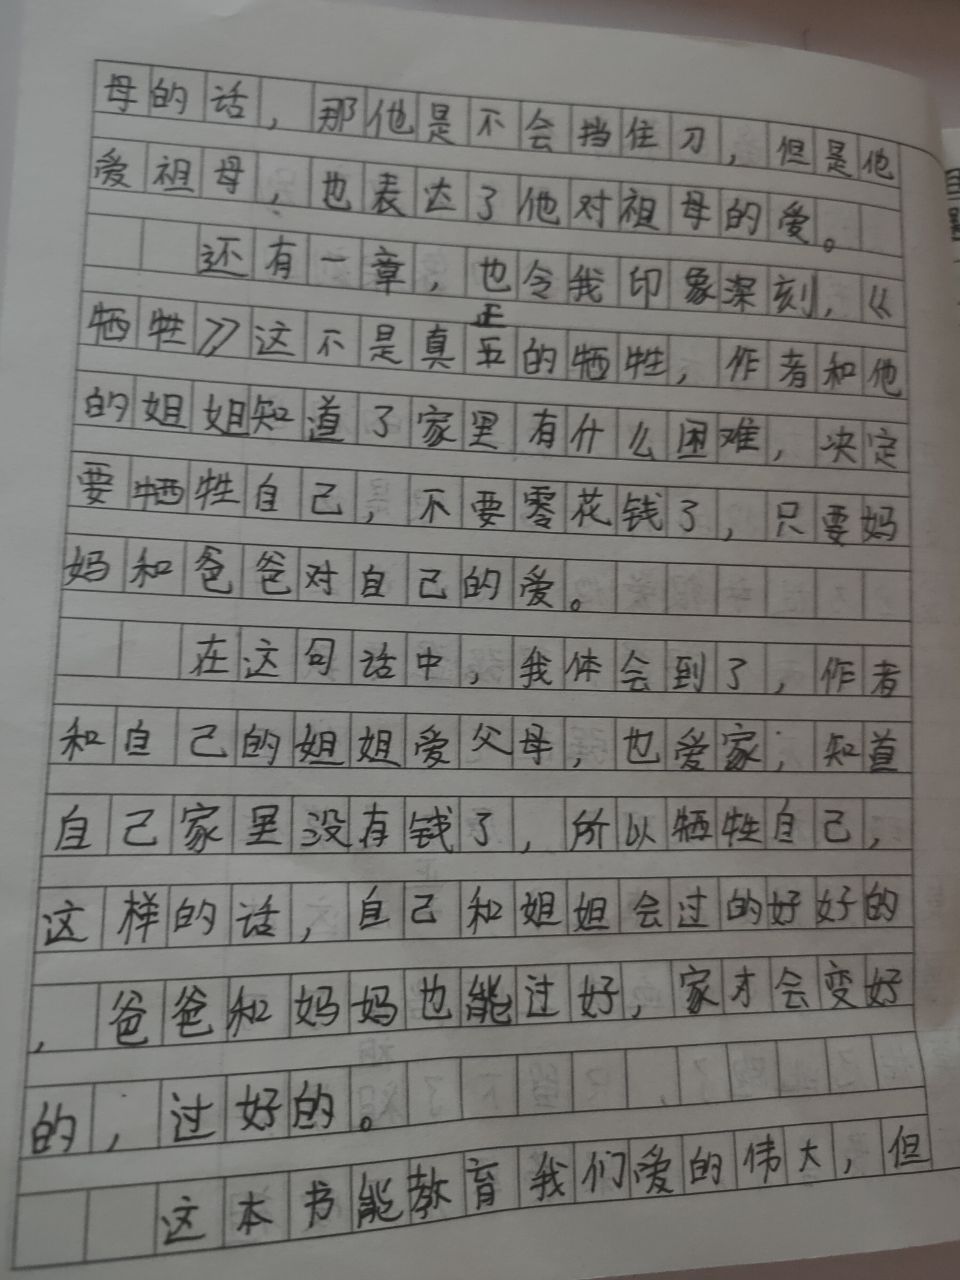 母的话，那他是不会挡住刀，但是他
爱祖母，也表达了他对祖母的爱。
还有一章，也令我印象深刻，《
牺牲》这不是真正的牺牲，作者和他
的姐姐知道了家里有什么困难，决定
要牺牲自己，不要零花钱了，只要妈
妈和爸爸对自己的爱。
在这句话中，我体会到了，作者
和自己的姐姐爱父母，也爱家；知道
自己家里没有钱了，所以牺牲自己，
这样的话，自己和姐姐会过的好好的
，爸爸和妈妈也能过好，家才会变好
的，过好的。
这本书能教育我们爱的伟大，但